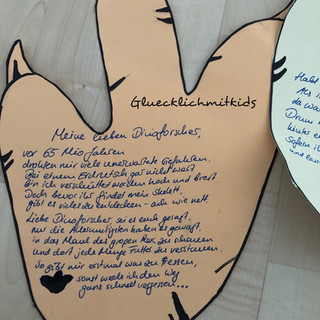 Gluecklichmitkids
Meine lieben Dinoforscher,
vor 65 Mio Jahren
drohten mir viele unerwartete Gefahren.
Bei einem Erdrutsch gar nicht weit
bin ich verschüttet worden hoch und breit.
Doch bevor ihr findet mein Skelett,
gibt es vieles zu entdecken - ach wie nett.
Liebe Dinoforscher, sei es euch gesagt,
nur die Allermutigsten haben es gewagt,
in das Maul des großen Rex zu schauen
und dort jede Menge Futter zu verstauen.
So gibt mir erstmal was zu fressen,
sonst werde ich den Weg
ganz schnell vergessen...
Habt
Als ih
da wa
Drum
hinter e
Sofern ih
und